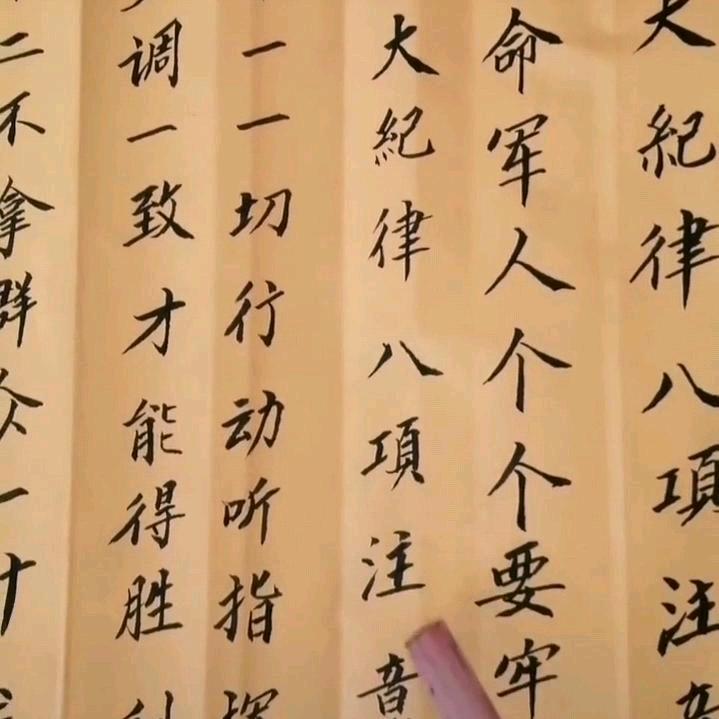 大紀律八項注意
命军人个个要牢
大紀律八項注意
一一切行动听指
调一致才能得胜
二不拿群众一